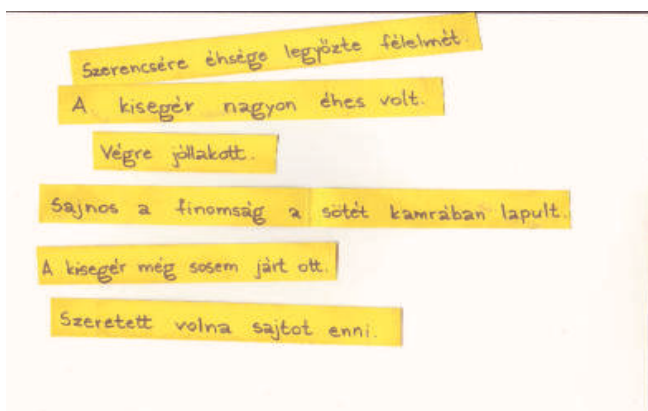 Szerencsére éhsége legyőzte félelmét.
A kisegér nagyon éhes volt.
Végre jóllakott.
Sajnos a finomság a sötét kamrában lapult.
A kisegér még sosem járt ott.
Szeretett volna sajtot enni.